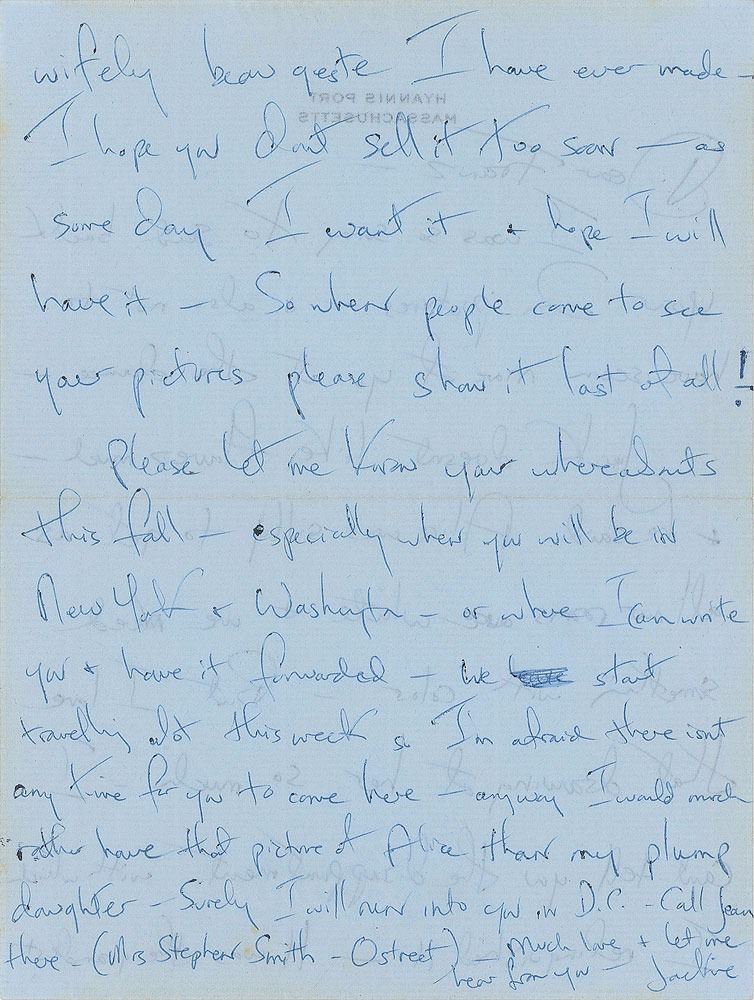 wifely beau geste I have ever made -
HYANNIS PORT
MASSACHUSETTS
I hope you don't sell it too soon — as
some day I want it & hope I will
have it — So when people come to see
your pictures please show it last of all!
please let me know your whereabouts
this fall — especially when you will be in
New York & Washington - or where I can write
you & have it forwarded — we start
travelling alot this week so I'm afraid there isnt
any time for you to come here — anyway I would much
rather have that picture of Alice than my plump
daughter - Surely I will run into you in D.C. - Call Jean
there - (Mrs Stephen Smith - O street) - much love & let me
hear from you -